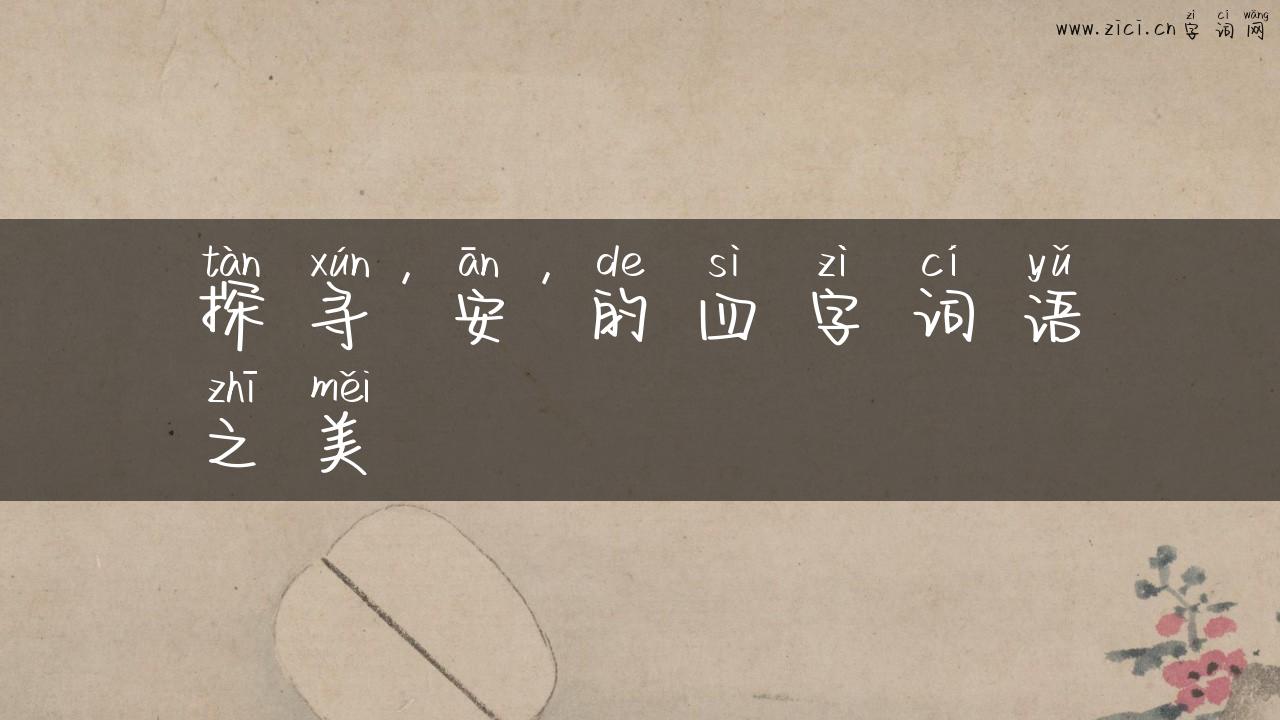 zì cí wǎng
www.zici.cn字词网
tàn xún, ān, de sì zì cí yǔ
探寻 安 的四字词语
zhī měi
之美